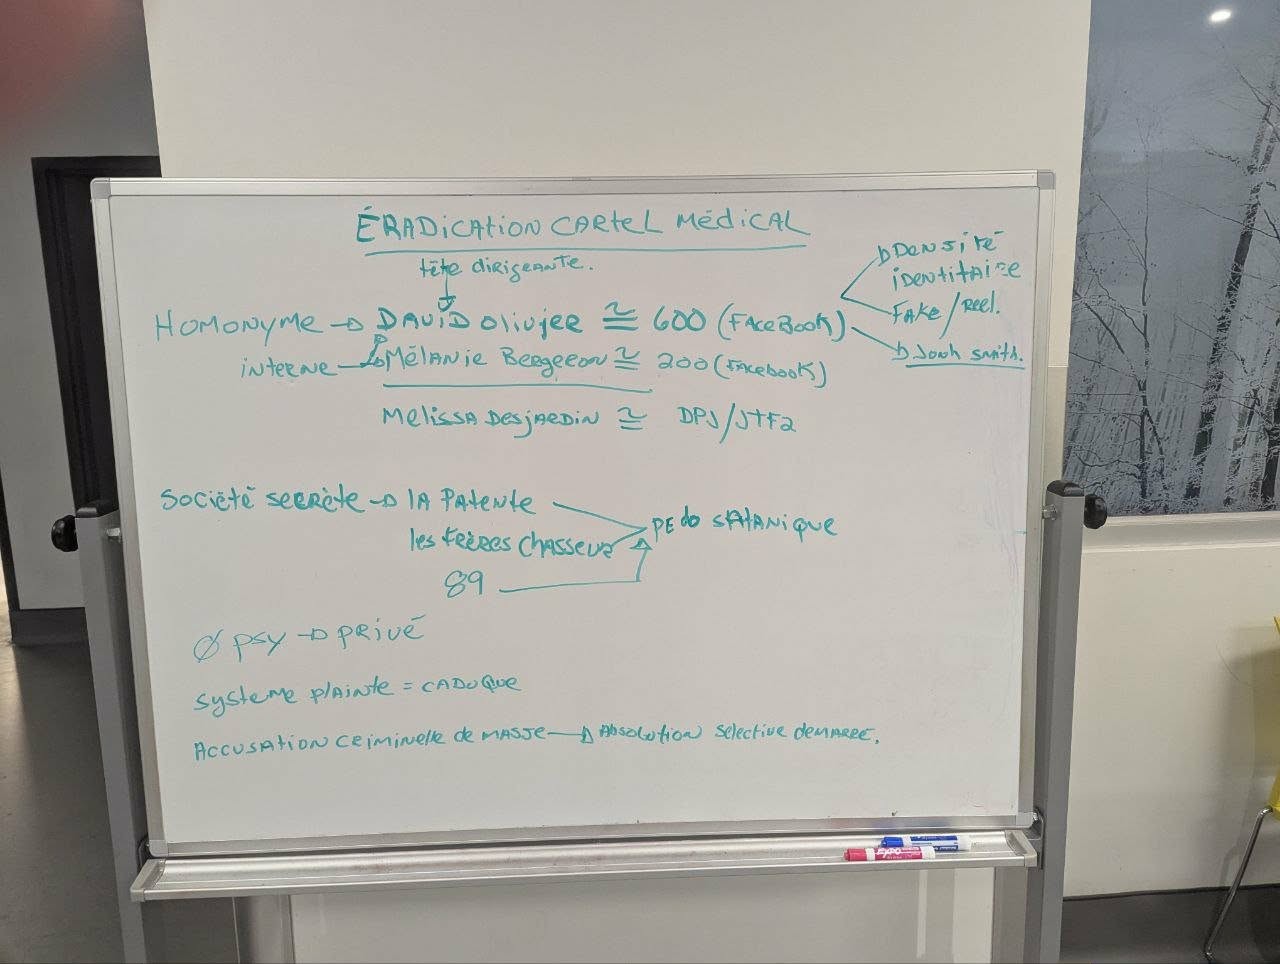 ÉRADICATION CARTEL MÉDICAL
tête dirigeante.
HOMONYME → DAVID Olivier ≅ 600 (FACEBOOK)
Densité
identitaire
FAKE/REEL.
Jonh smith.
interne → MÉLANIE Bergeron ≅ 200 (FACEBOOK)
Melissa Desjardin ≅ DPJ/JTF2
Société secrète → LA PAtente
les frères Chasseur
PEdo SATANIQUE
89
Ø PSY → PRIVÉ
systeme plainte = CADUQUE
ACCUSATION CRIMINElle de MASSE → Absolution sélective démarré.
EXPO